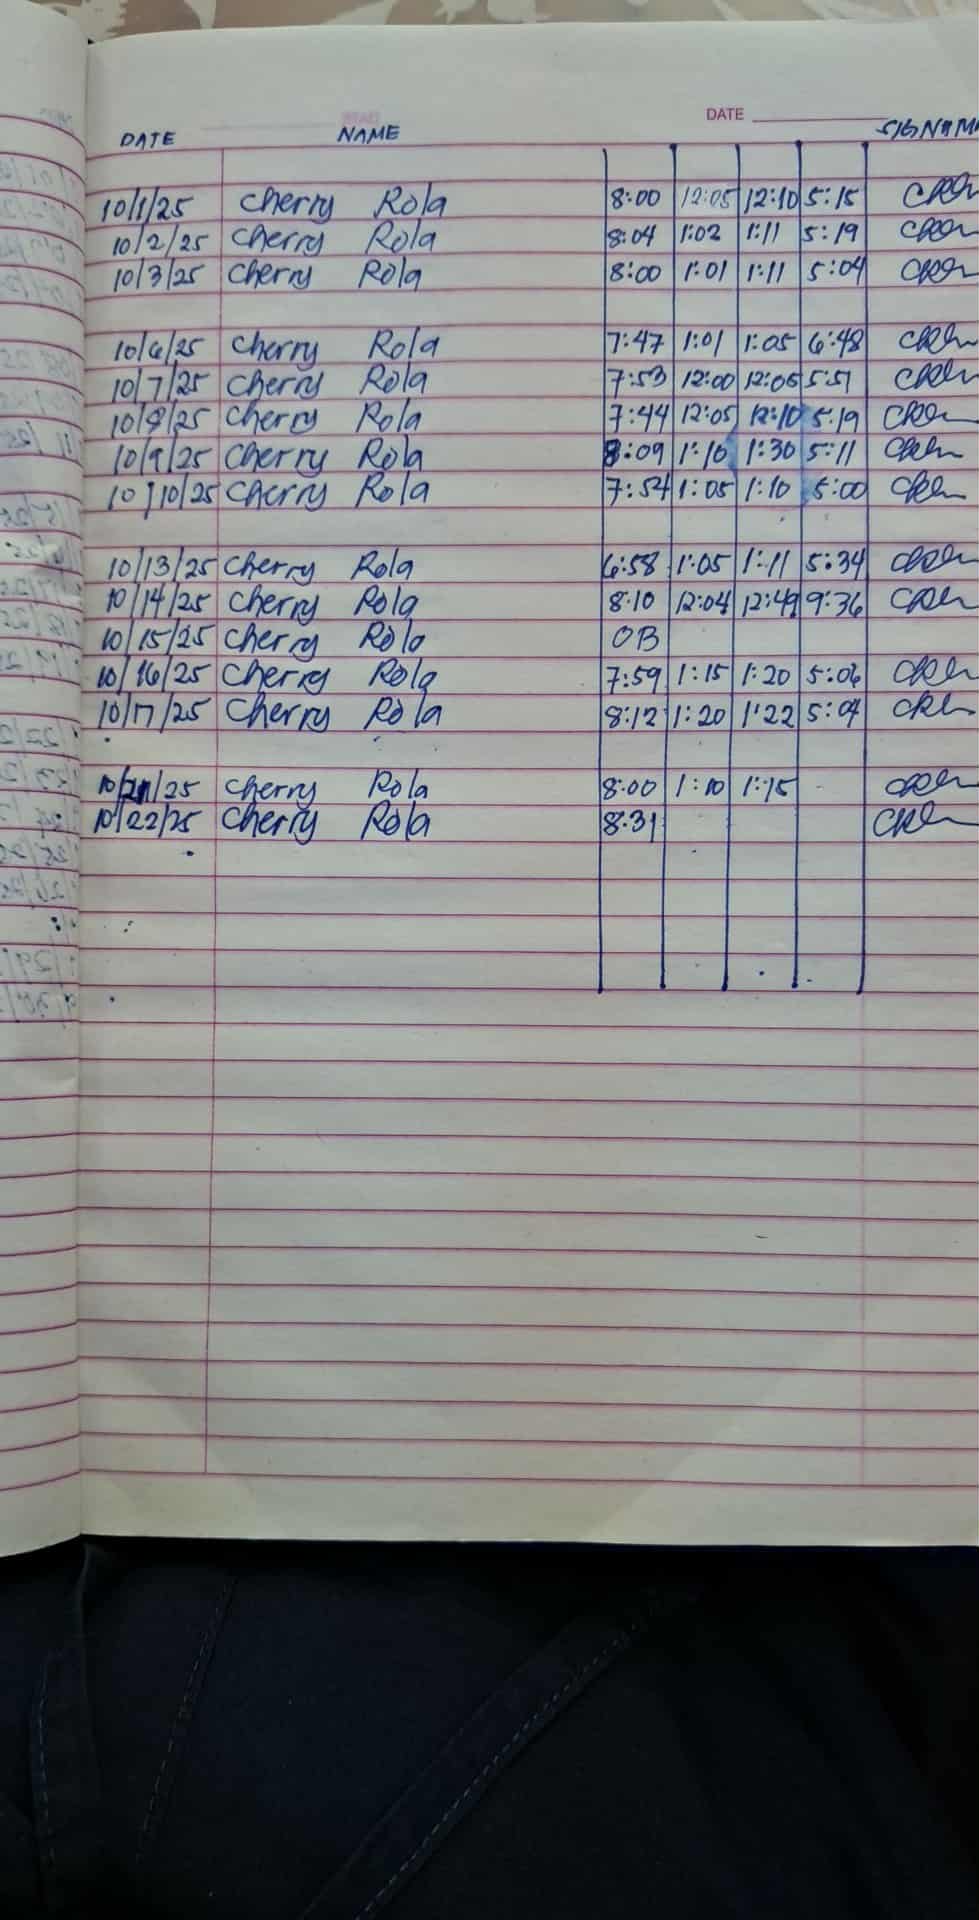 DATE
DATE NAME SIGNAM
10/1/25 Cherry Rola 8:00 12:05 12:10 5:15
10/2/25 Cherry Rola 8:04 1:02 1:11 5:19
10/3/25 Cherry Rola 8:00 1:01 1:11 5:04
10/6/25 Cherry Rola 7:47 1:01 1:05 6:48
10/7/25 Cherry Rola 7:53 12:00 12:05 5:51
10/8/25 Cherry Rola 7:44 12:05 12:10 5:19
10/9/25 Cherry Rola 8:09 1:10 1:30 5:11
10/10/25 Cherry Rola 7:54 1:05 1:10 5:00
10/13/25 Cherry Rola 6:58 1:05 1:11 5:34
10/14/25 Cherry Rola 8:10 12:04 12:49 9:36
10/15/25 Cherry Rola OB
10/16/25 Cherry Rola 7:59 1:15 1:20 5:06
10/17/25 Cherry Rola 8:12 1:20 1:22 5:04
10/21/25 Cherry Rola 8:00 1:10 1:15
10/22/25 Cherry Rola 8:31